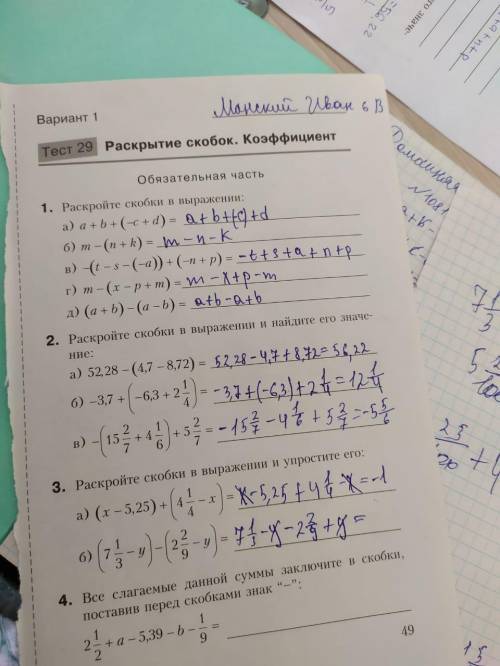 Вариант 1
Манский Иван 6 В
Тест 29 Раскрытие скобок. Коэффициент
Обязательная часть
1. Раскройте скобки в выражении:
а) a + b + (−c + d) = a+b+(-c)+d
б) m − (n + k) = m-n-k
в) −(t − s − (−a)) + (−n + p) = -t+s+a+n+p
г) m − (x − p + m) = m-x+p-m
д) (a + b) − (a − b) = a+b-a+b
2. Раскройте скобки в выражении и найдите его значе-
ние:
а) 52,28 − (4,7 − 8,72) = 52,28-4,7+8,72=56,22
б) −3,7 + (−6,3 + 2 1/4) = -3,7+(-6,3)+2 1/4=12 1/4
в) −(15 2/7 + 4 1/6) + 5 2/7 = -15 2/7 - 4 1/6 + 5 2/7 = -5 5/6
3. Раскройте скобки в выражении и упростите его:
а) (x − 5,25) + (4 1/4 − x) = x-5,25+4 1/4-x=-1
б) (7 1/3 − y) − (2 2/9 − y) = 7 1/3 - y - 2 2/9 + y =
4. Все слагаемые данной суммы заключите в скобки,
поставив перед скобками знак “−”:
2 1/2 + a − 5,39 − b − 1/9 =
49
Домашняя
7 1/3